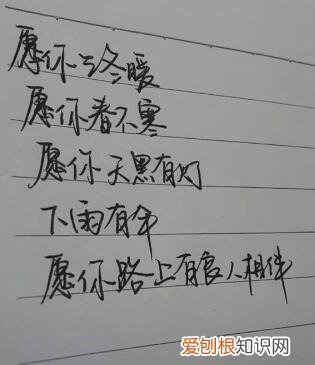 愿你三冬暖
愿你春不寒
愿你天黑有灯
下雨有伞
愿你路上有良人相伴
爱刨根知识网